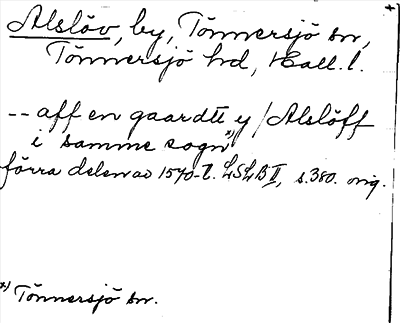 Alslöv, by, Tönnersjö sn,
Tönnersjö hd, Hall. l.
-- aff en gaardtt y / Alslöff
i samme sogn x)
förra delen av 1570-t. LSLB II, s. 380. orig.
x) Tönnersjö sn.